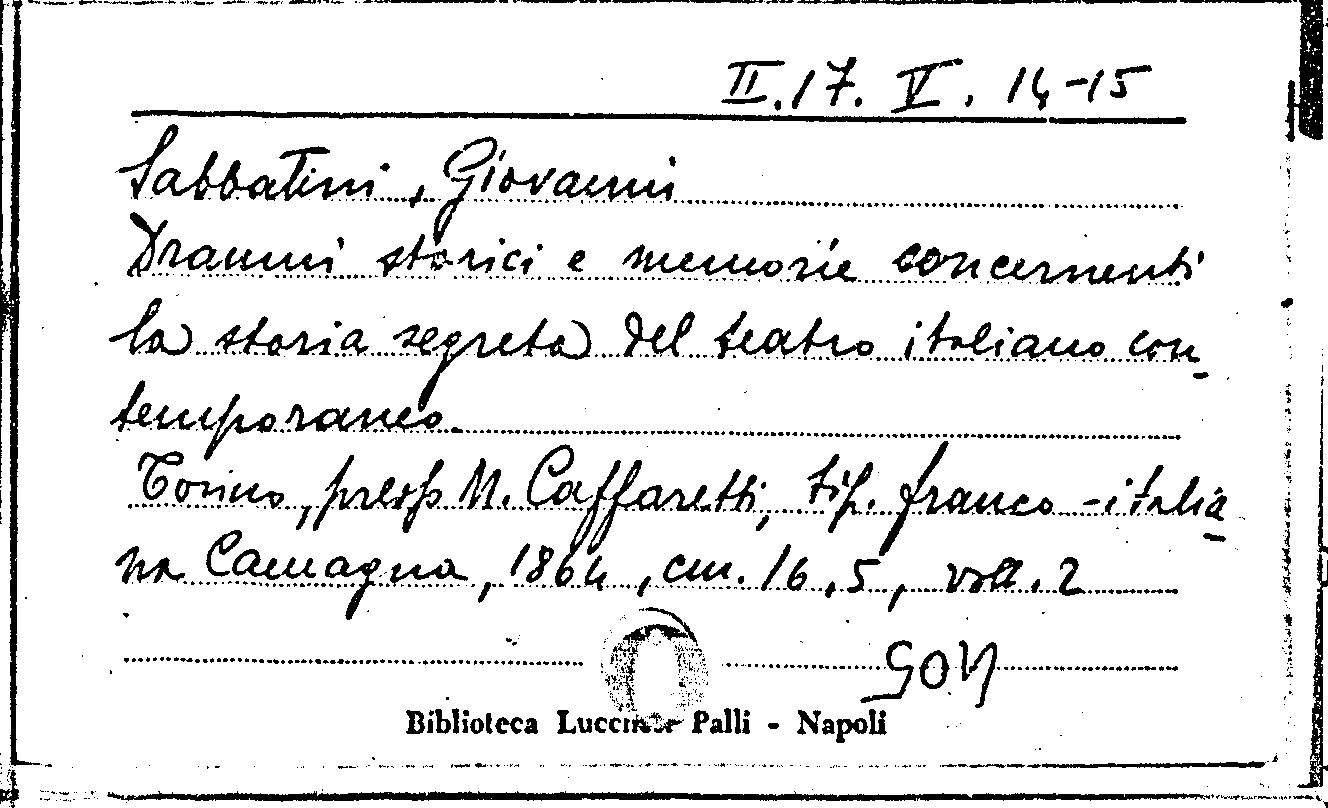 II.17. V. 14-15
Sabbatini, Giovanni
Drammi storici e memorie concernenti
la storia segreta del teatro italiano con-
temporaneo.
Torino, presso M. Caffaretti, tip. franco-italia-
na Camagna, 1864, cm. 16,5, voll. 2
Biblioteca Lucchesi Palli - Napoli